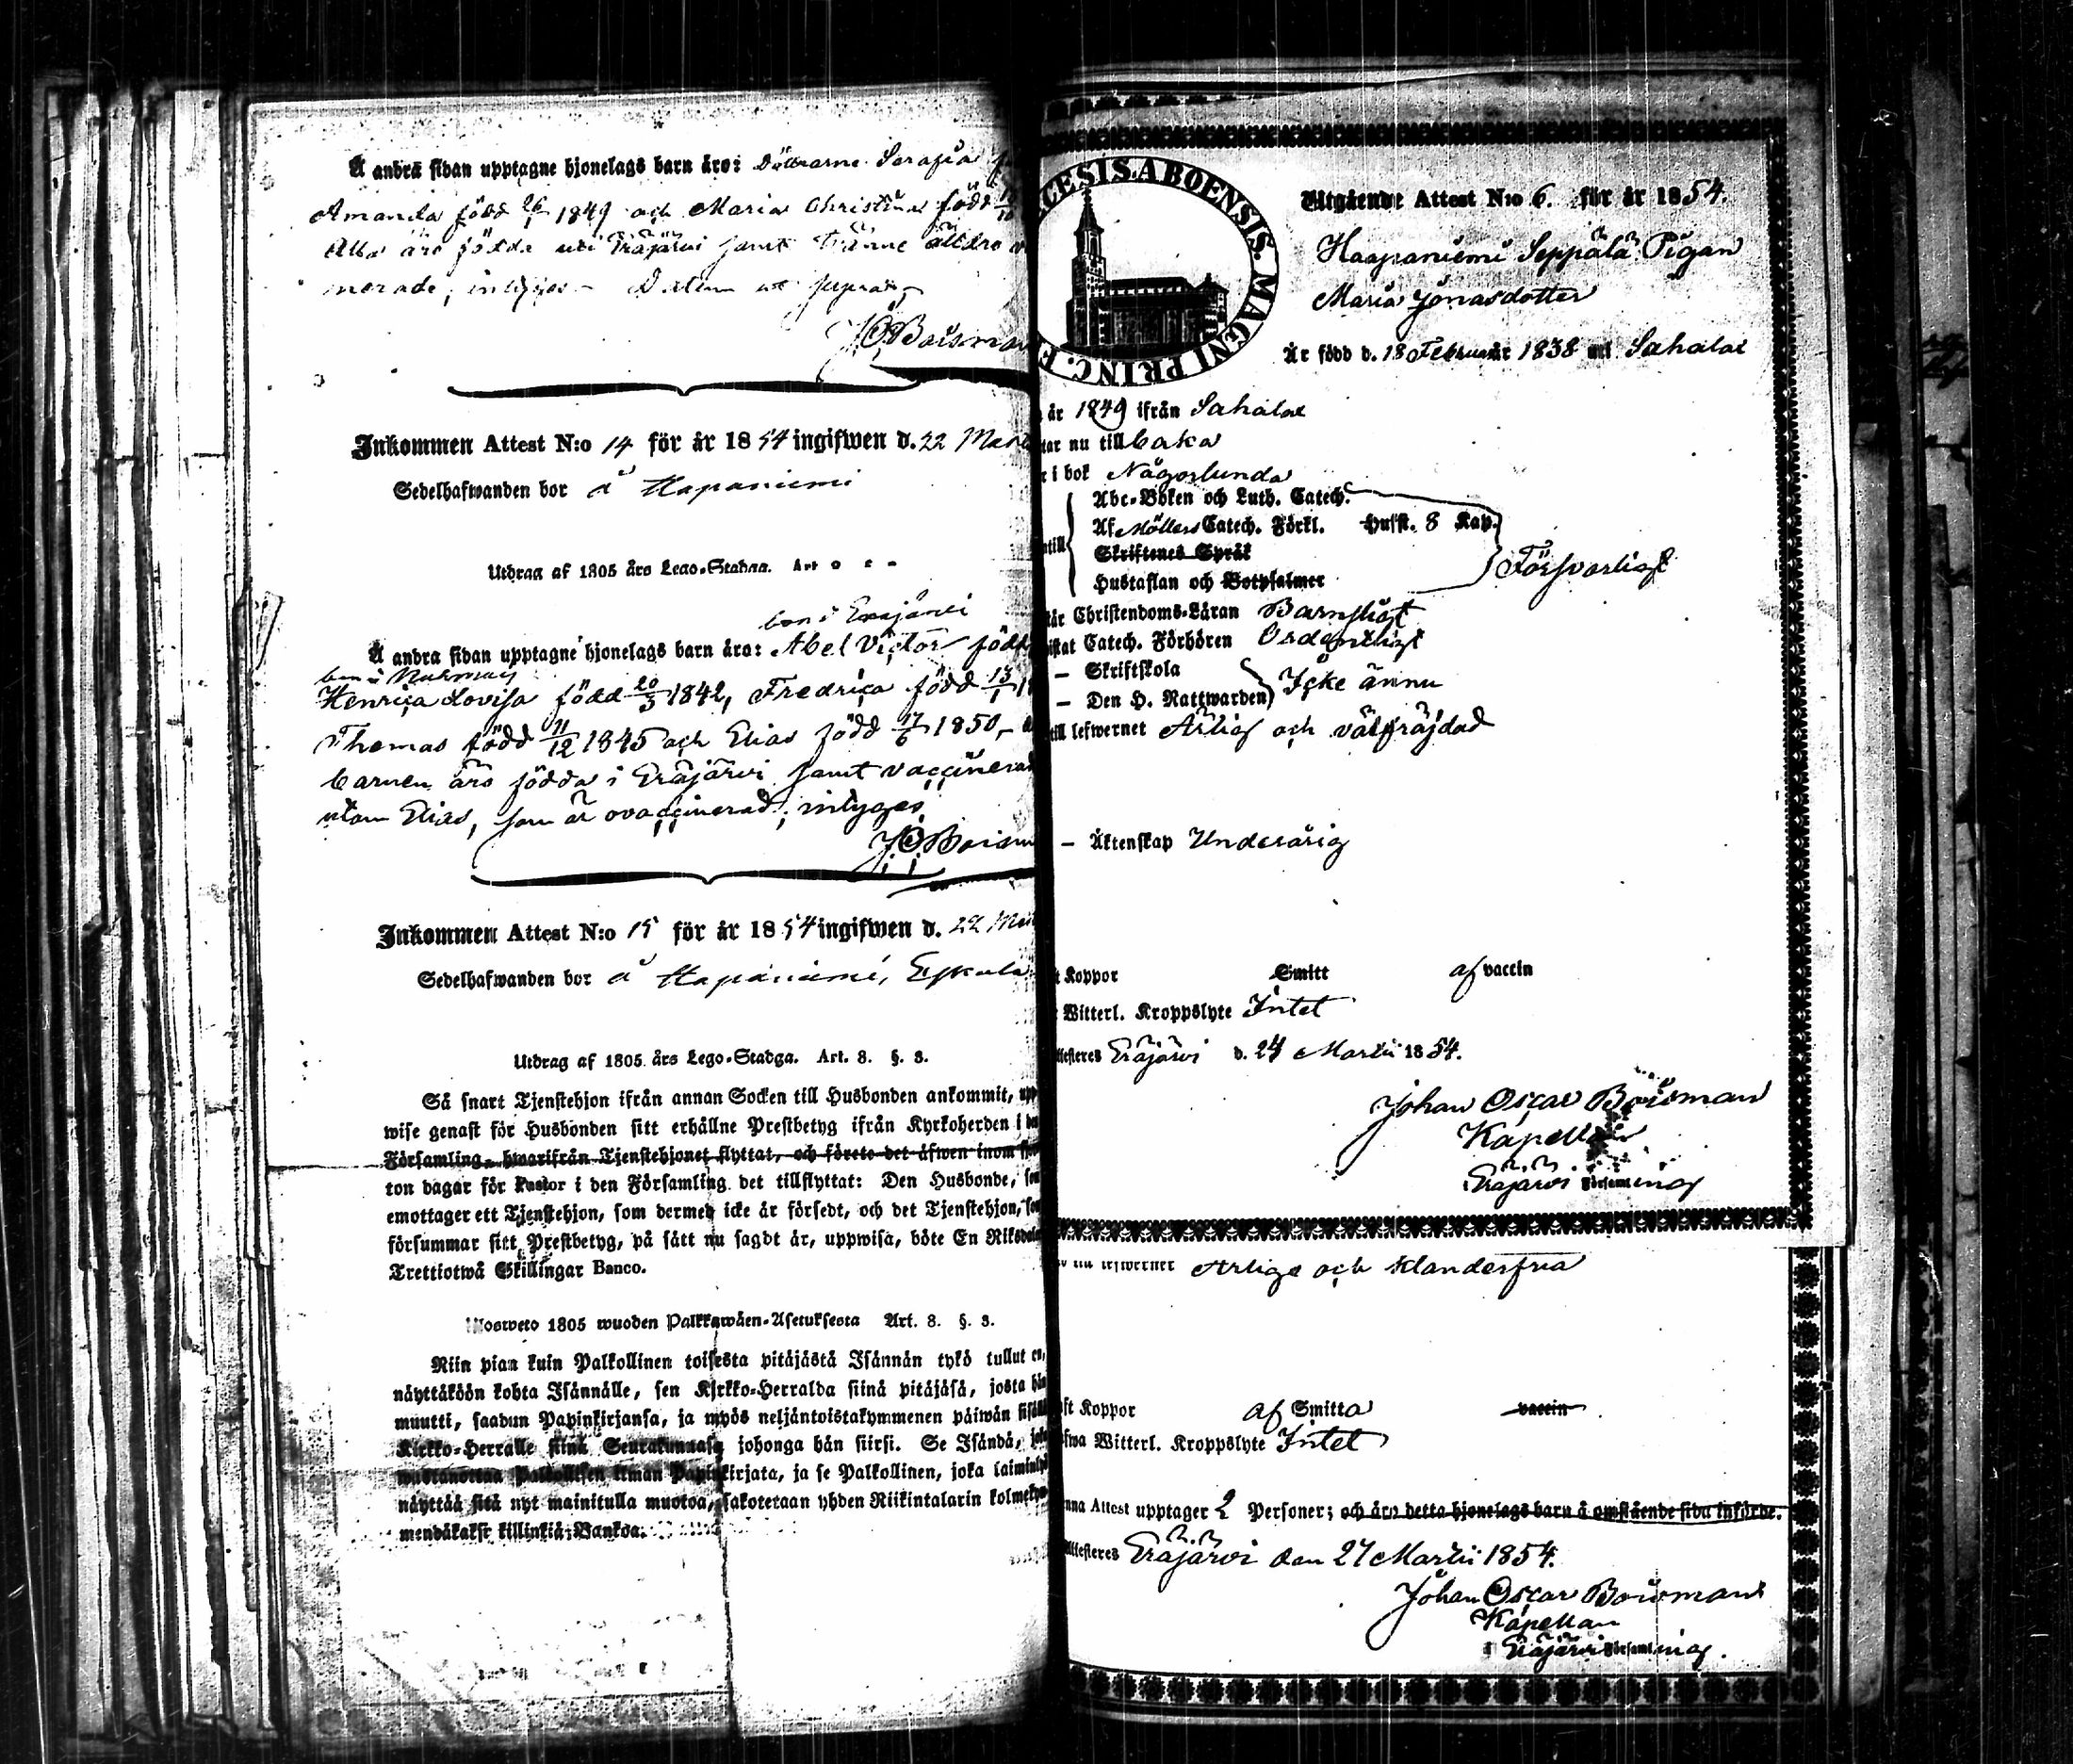 Å andra sidan upptagne hjonelags barn äro: Döttrarne Serafia
Amanda född 26/ 1849 och Maria Christina född
Alla äro födda uti Eräjärvi samt
merade, intygas – Datum ut supra,
J O Boisman
Inkommen Attest N:o 14 för år 1854 ingifwen d. 22 Mart
Sedelhafwanden bor å Hapaniemi
Utdrag af 1805 års Lego-Stadga. Art
bor i Eräjärvi
Å andra sidan upptagne hjonelags barn äro: Abel Victor född
Henrica Lovisa född 20/3 1842, Fredrica född 13/1
Thomas född 11/12 1845 och Elias född 17/6 1850,
barnen äro födda i Eräjärvi samt vaccinerad
utom Elias, som är ovaccinerad; intygas,
J O Boism
Inkommen Attest N:o 15 för år 1854 ingifwen d. 22 Mar
Sedelhafwanden bor å Hapaniemi,
Utdrag af 1805 års Lego-Stadga. Art. 8. §. 3.
Så snart Tjenstehjon ifrån annan Socken till Husbonden ankommit, upp
wise genast för Husbonden sitt erhållne Prestbetyg ifrån Kyrkoherden i den
Församling, hwarifrån Tjenstehjonet flyttat, och förete det äfwen inom fjor
ton dagar för Pastor i den Församling det tillflyttat: Den Husbonde, som
emottager ett Tjenstehjon, som dermed icke är försedt, och det Tjenstehjon, som
försummar sitt Prestbetyg, på sätt nu sagdt är, uppwisa, böte En Riksdaler
Trettiotwå Skillingar Banco.
Ulosweto 1805 wuoden Palkkawäen-Asetuksesta Art. 8. §. 3.
Niin pian kuin Palkollinen toisesta pitäjästä Isännän tykö tullut on,
näyttäköön kohta Isännälle, sen Kirkko-Herralda siinä pitäjäsä, josta hän
muutti, saadun Papinkirjansa, ja myös neljäntoistakymmenen päiwän sisällä
Kirkko-Herralle siinä Seurakunnasa johonga hän siirsi. Se Isändä, joka
wastanottaa Palkollisen ilman Papinkirjata, ja se Palkollinen, joka laiminlyö
näyttää sitä nyt mainitulla muotoa, sakotetaan yhden Riikintalarin kolmeky
mendäkaksi killinkiä Bankoa.
CESIS. ABOENSIS. MAGNI PRINC. F
Utgående Attest N:o 6. för år 1854.
Haapaniemi Seppälä Pigan
Maria Jonasdotter
Är född d. 18 Februar 1838 uti Sahalax
år 1849 ifrån Sahalax
tar nu tillbaka
r i bok Någorlunda
Abc-Boken och Luth. Catech.
Af Möllers Catech. Förkl. Husst. 8 Kap.
Skriftenes Språk
Hustaflan och Botpsalmer
Försvarligt
tår Christendoms-Läran Barnsligt
istat Catech. Förhören Ordentligt
– Skriftskola
– Den H. Nattwarden Icke ännu
till lefwernet Ärlig och välfräjdad
– Äktenskap Underårig
t Koppor Smitt af vaccin
Witterl. Kroppslyte Intet
Attesteres Eräjärvi d. 24 Martii 1854.
Johan Oscar Boisman
Kapellan
Eräjärvi Församling
Ärliga och klanderfria
ft Koppor af Smitta vaccin
fwa Witterl. Kroppslyte Intet
nna Attest upptager 2 Personer; och äro detta hjonelags barn å omstående sida införde.
Attesteres Eräjärvi den 27 Martii 1854.
Johan Oscar Boisman
Kapellan
i Eräjärvi Församling.